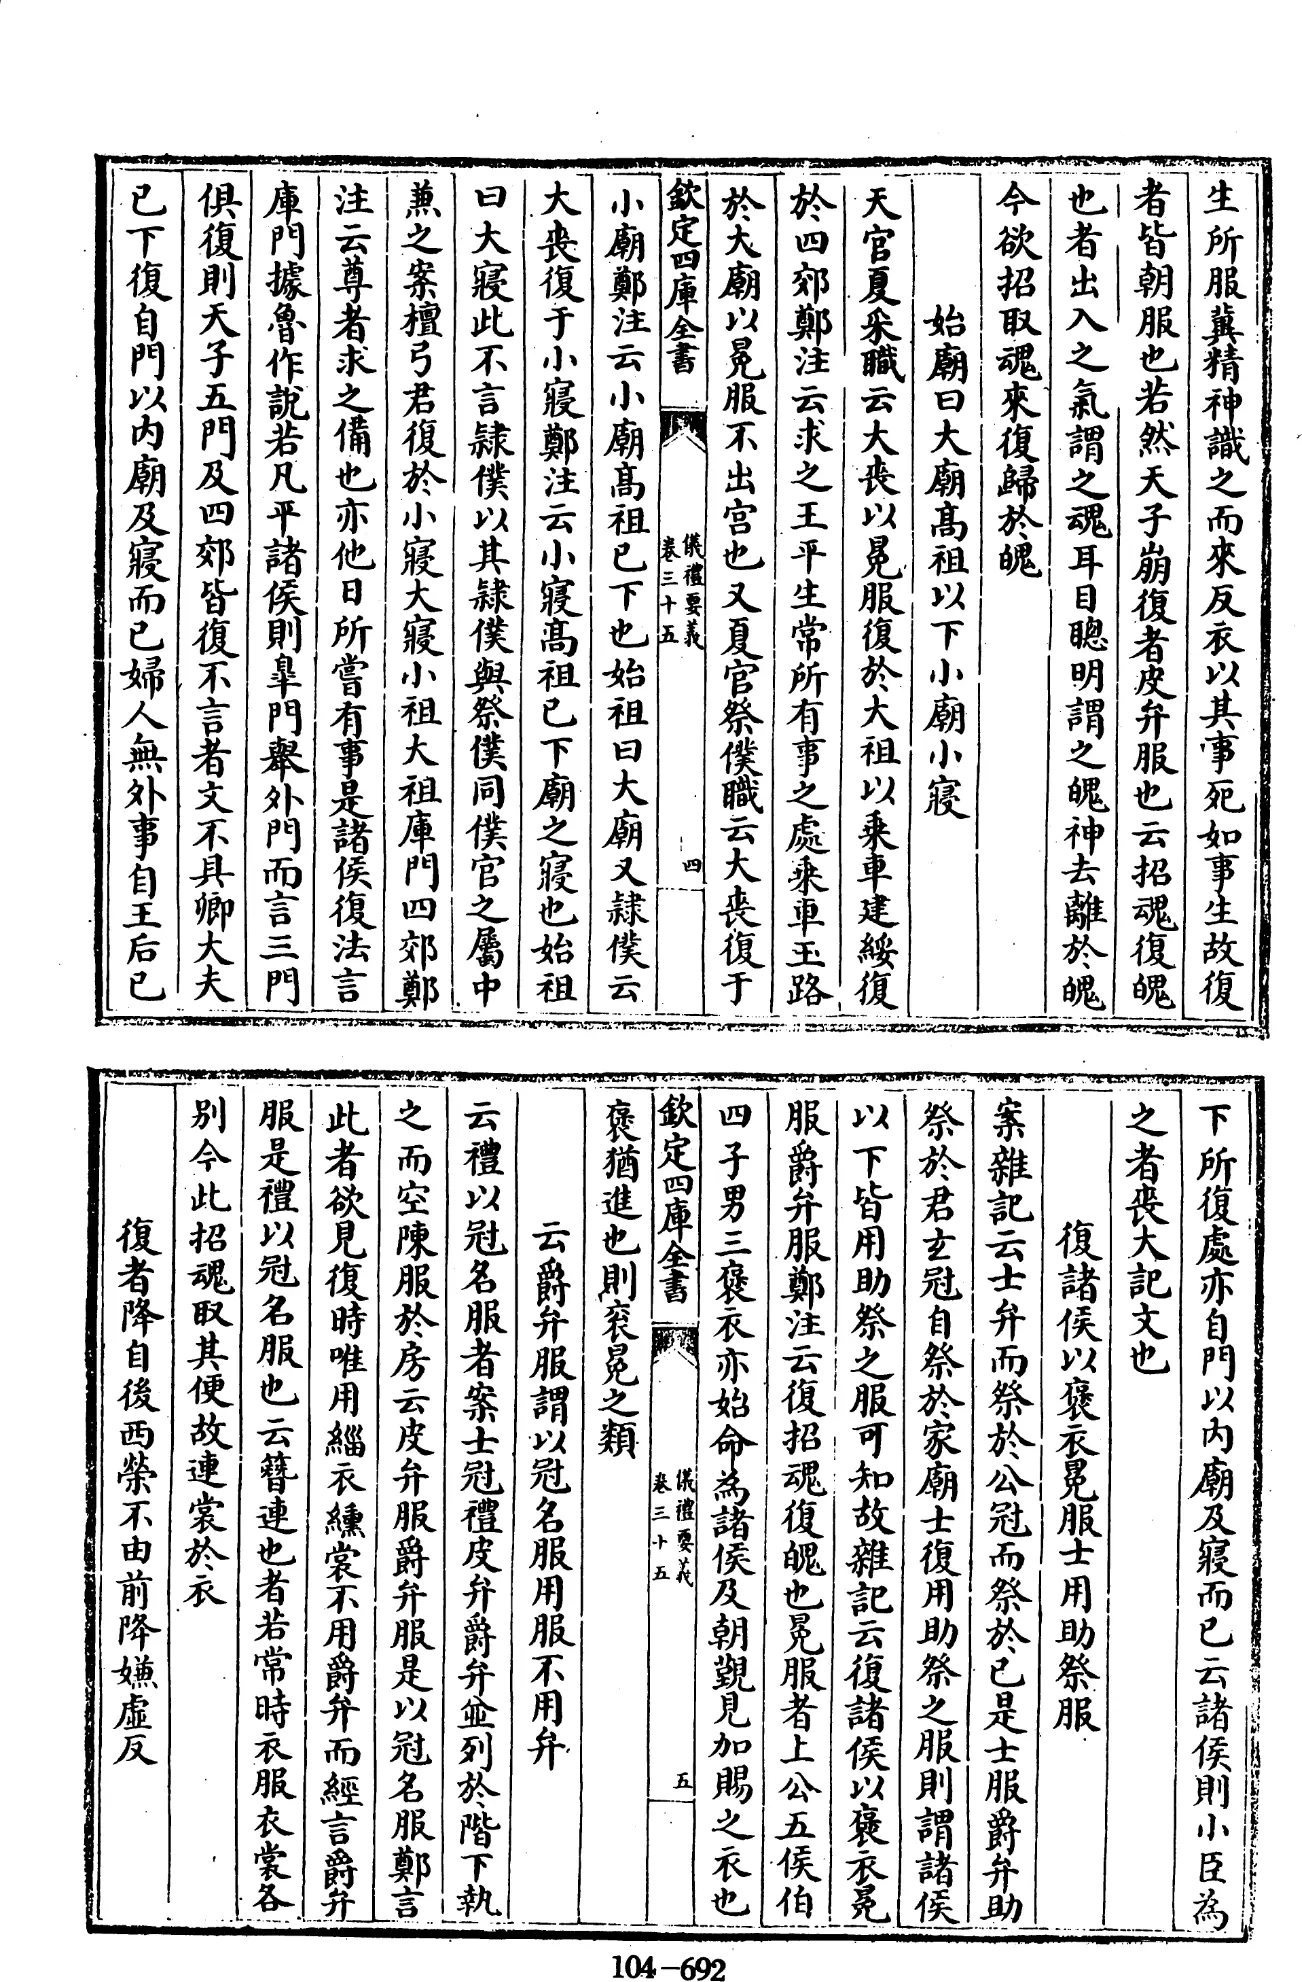 生所服冀精神識之而來反衣以其事死如事生故復
者皆朝服也若然天子崩復者皮弁服也云招魂復魄
也者出入之氣謂之魂耳目聰明謂之魄神去離於魄
今欲招取魂來復歸於魄
始廟曰大廟髙祖以下小廟小寢
天官夏采職云大喪以冕服復於大祖以乘車建綏復
於四郊鄭注云求之王平生常所有事之處乘車玉路
於大廟以冕服不出宫也又夏官祭僕職云大喪復于
欽定四庫全書
儀禮要義
卷三十五
四
小廟鄭注云小廟髙祖已下也始祖曰大廟又隷僕云
大喪復于小寢鄭注云小寢髙祖已下廟之寢也始祖
曰大寢此不言隷僕以其隷僕與祭僕同僕官之屬中
兼之案檀弓君復於小寢大寢小祖大祖庫門四郊鄭
注云尊者求之備也亦他日所嘗有事是諸侯復法言
庫門據魯作說若凡平諸侯則臯門舉外門而言三門
俱復則天子五門及四郊皆復不言者文不具卿大夫
已下復自門以内廟及寢而已婦人無外事自王后已
下所復處亦自門以内廟及寢而已云諸侯則小臣為
之者喪大記文也
復諸侯以襃衣冕服士用助祭服
案雜記云士弁而祭於公冠而祭於已是士服爵弁助
祭於君玄冠自祭於家廟士復用助祭之服則謂諸侯
以下皆用助祭之服可知故雜記云復諸侯以襃衣冕
服爵弁服鄭注云復招魂復魄也冕服者上公五侯伯
四子男三襃衣亦始命為諸侯及朝覲見加賜之衣也
欽定四庫全書
儀禮要義
卷三十五
五
襃猶進也則衮冕之類
云爵弁服謂以冠名服用服不用弁
云禮以冠名服者案士冠禮皮弁爵弁並列於階下執
之而空陳服於房云皮弁服爵弁服是以冠名服鄭言
此者欲見復時唯用緇衣纁裳不用爵弁而經言爵弁
服是禮以冠名服也云簪連也者若常時衣服衣裳各
别今此招魂取其便故連裳於衣
復者降自後西榮不由前降嫌虛反
104-692